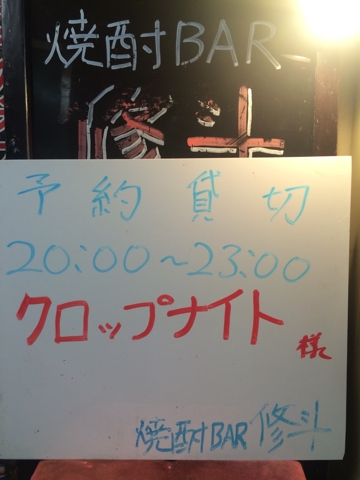 焼酎BAR
修斗
予約貸切
20:00~23:00
クロップナイト
様
焼酎BAR 修斗